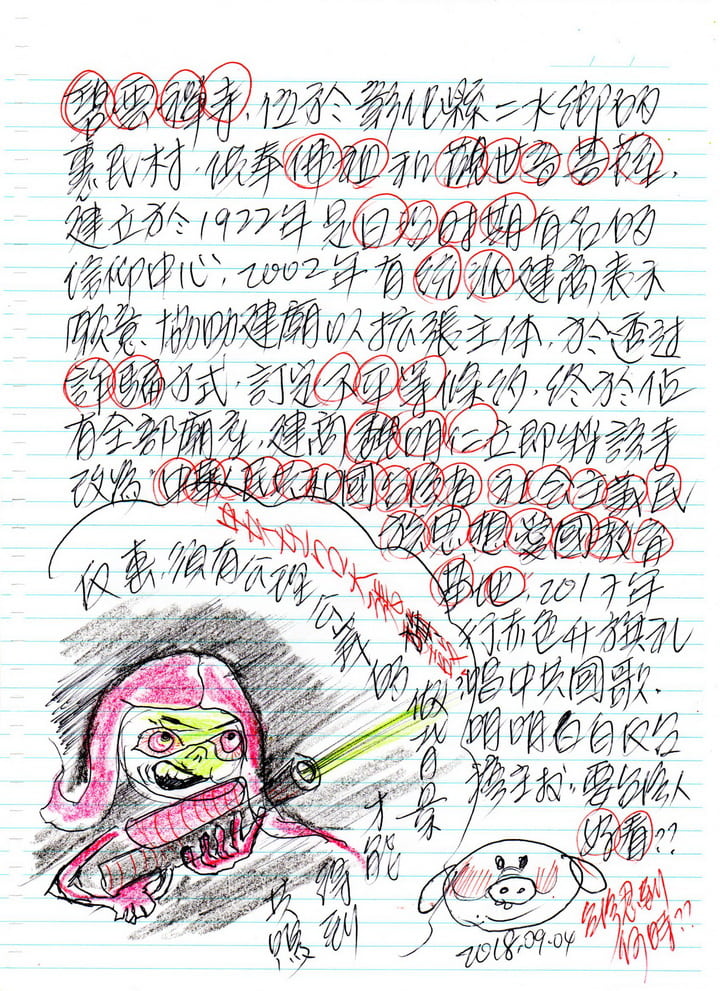 碧雲禪寺,位於彰化縣二水鄉的
惠民村,供奉佛祖和觀世音菩薩,
建立於1922年是日治时期有名的
信仰中心,2002年有統派建商表示
願意協助建廟以拡張主体,於透过
詐騙方式,訂定不平等條約,終於佔
有全部廟產,建商魏明仁立即將該寺
改為"中華人民共和國台灣省社会主義民
族思想愛國教育
基地,2017年
行赤色升旗礼
唱中共國歌.
明明白白反台
獨主張,要台湾人
好看??
仗義,須有公理公義的
做後
才能
得到
共
2018.09.04
何時??